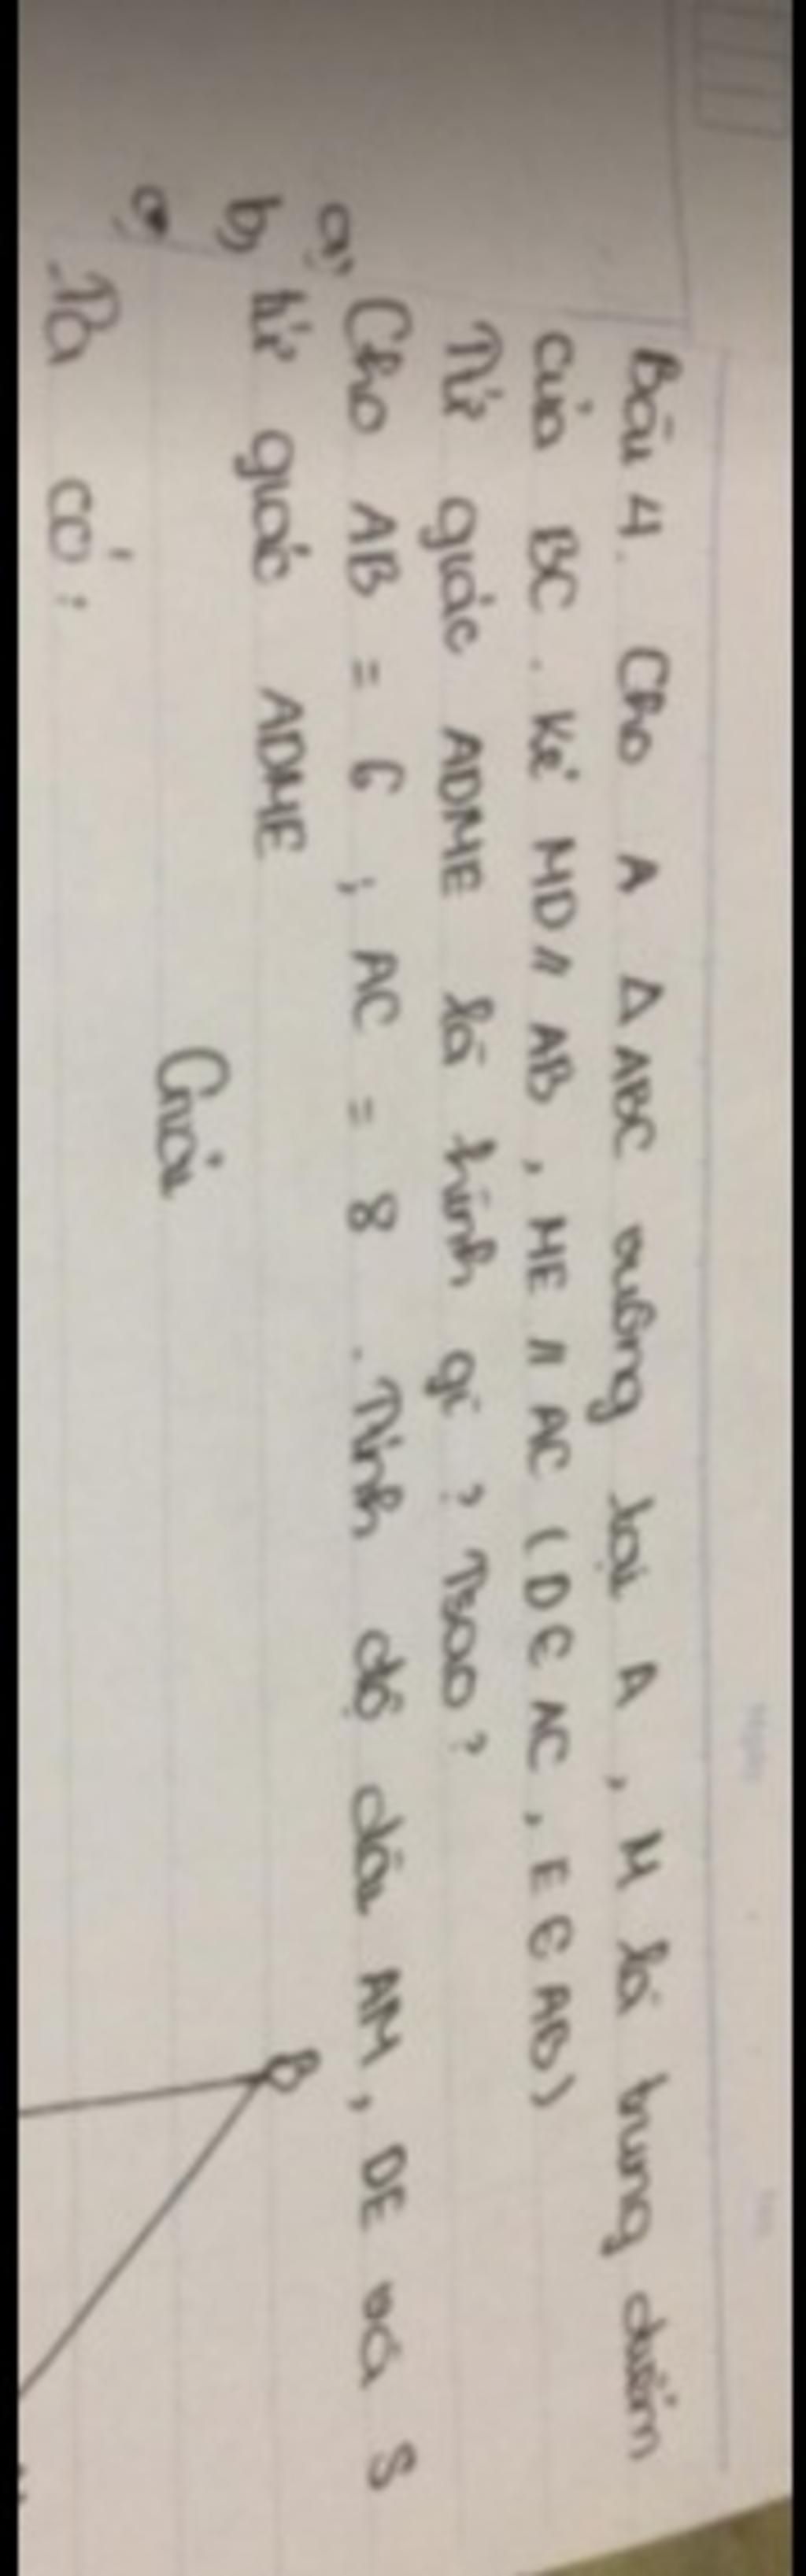 Bài 4. Cho A Δ ABC vuông tại A, M là trung điểm
của BC. Kẻ MD // AB, ME // AC (D ∈ AC, E ∈ AB)
a, Tứ giác ADME là hình gì? Tsao?
b, Cho AB = 6; AC = 8. Tính độ dài AM, DE và S
tứ giác ADME
Giải
a,
Ta có:
B